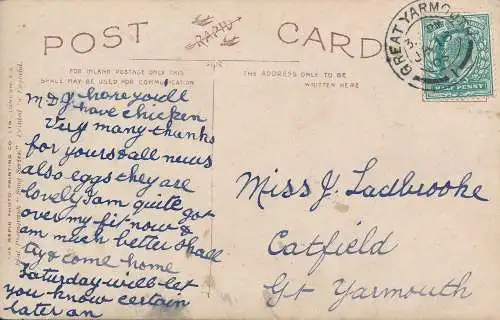 POST CARD
RAPID
FOR INLAND POSTAGE ONLY THIS
SPACE MAY BE USED FOR COMMUNICATION
THE ADDRESS ONLY TO BE
WRITTEN HERE
GREAT YARMOUTH
PENNY
THE RAPID PHOTO PRINTING CO., LTD., LONDON, E.C.
M D J hope you'll
have chicken
Very many thanks
for yours & all news
also eggs they are
lovely I am quite got
over my fit now &
am much better Shall
try & come home
Saturday will let
you know certain
later on
Miss J. Ladbrooke
Catfield
Gt Yarmouth